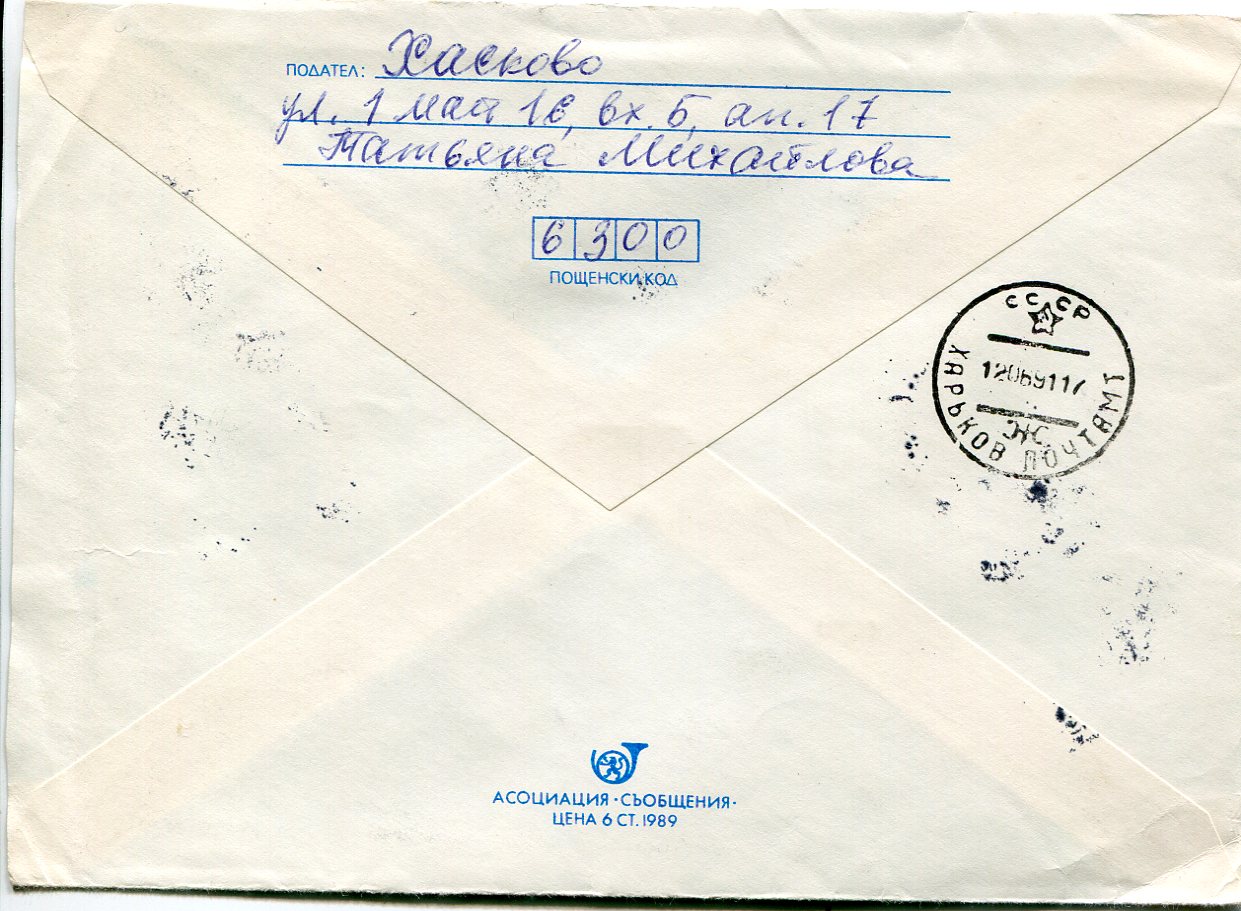 ПОДАТЕЛ: Хасково
ул. 1 май 16, вх. Б, ап. 17
Татьяна Михайлова
6300
ПОЩЕНСКИ КОД
СССР
12069117
Ж
ХАРЬКОВ ПОЧТАМТ
АСОЦИАЦИЯ · СЪОБЩЕНИЯ ·
ЦЕНА 6 СТ. 1989